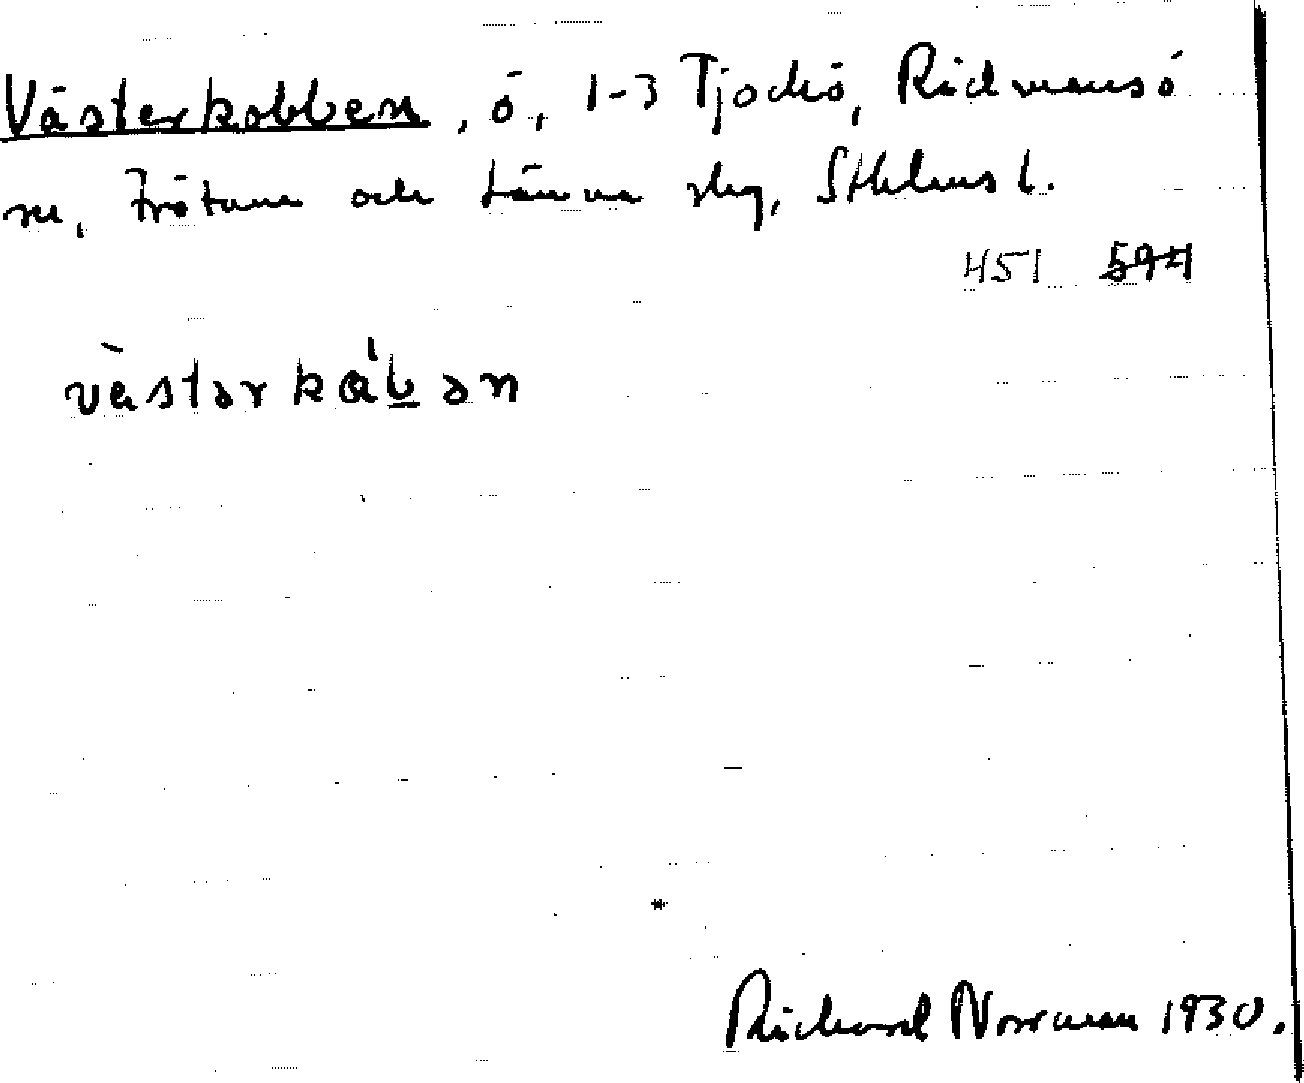 Västerkobben, ö, 1-3 Tjockö, Rådmansö
sn, Frötuna och Länna skg, Sthlms l.
451 594
västərkåb̲ən
Richard Norrman 1930.